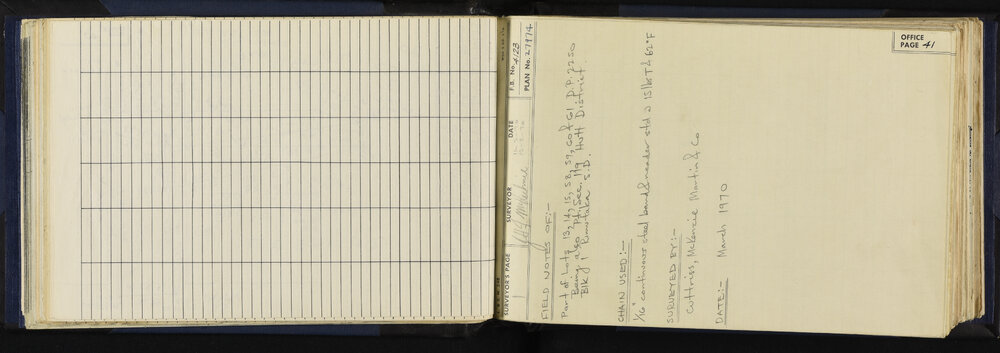 OFFICE
PAGE 41
SURVEYOR'S PAGE
1
SURVEYOR
DATE
F.B. No. 4123
PLAN No. 27974
FIELD NOTES OF:-
Part of Lots 13, 14, 15, 58, 59, 60 & 61 D.P. 2250
Being also Pt. Sec. 119 Hutt District
Blk 1 Rimutaka S.D.
CHAIN USED:-
1/16" continuous steel band & reader std @ 15 lbs T & 62°F
SURVEYED BY:-
Cuttriss, McKenzie Martin & Co
DATE:- March 1970